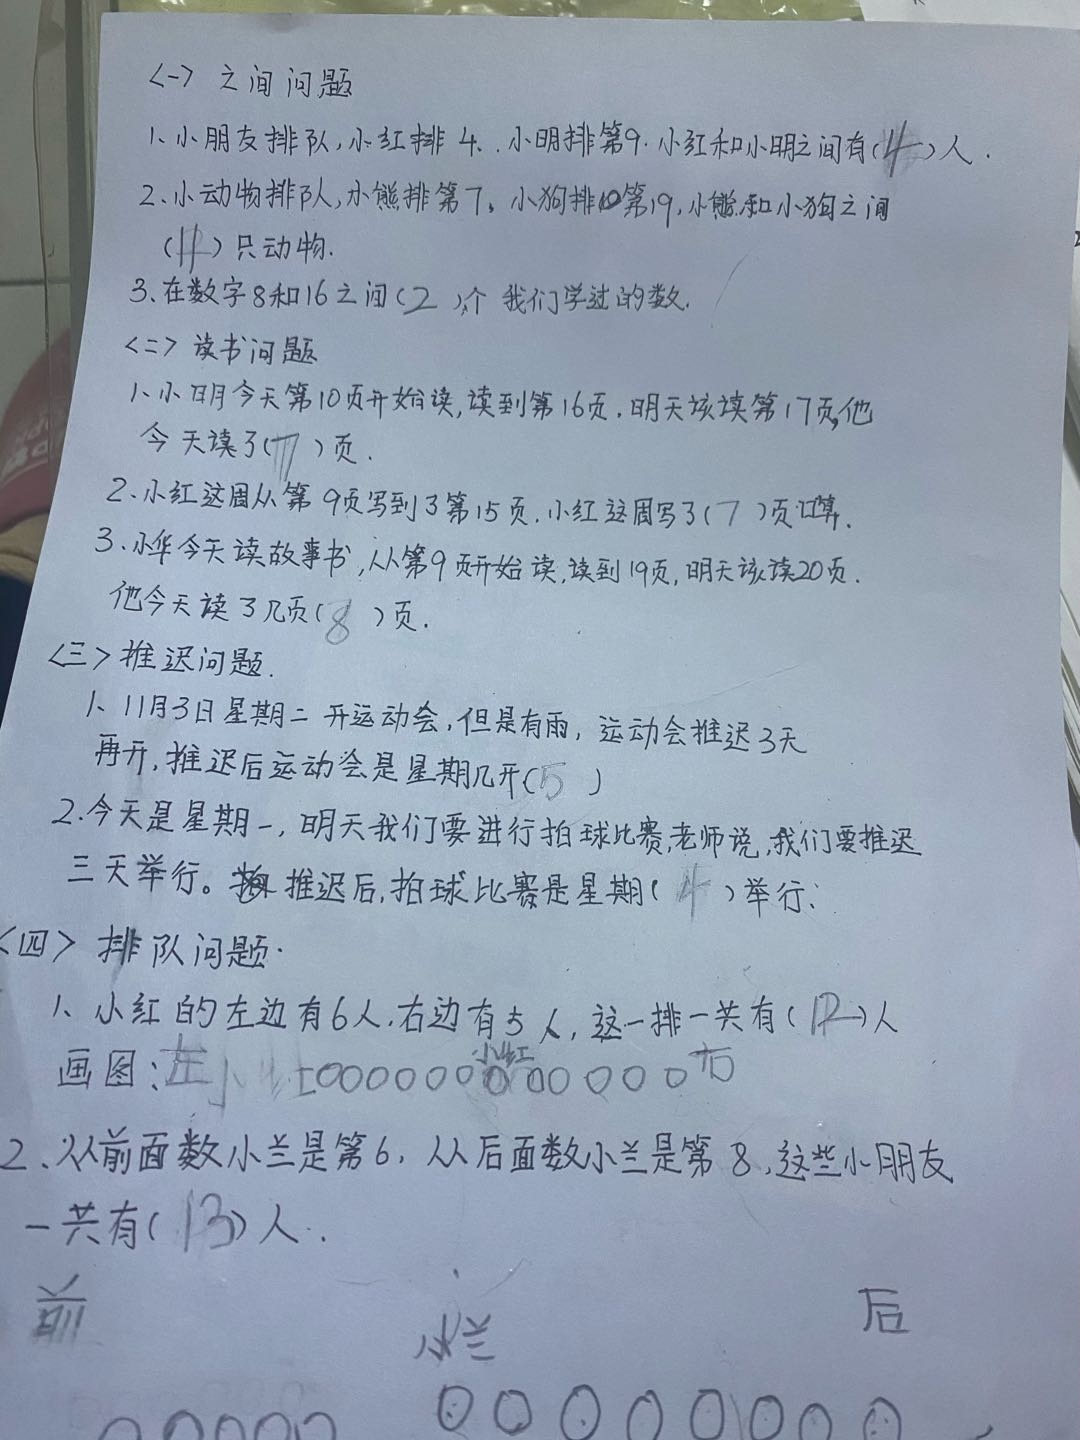 <一> 之间问题
1、小朋友排队,小红排 4. 小明排第9. 小红和小明之间有(4)人.
2、小动物排队,小熊排第7。小狗排第19,小熊和小狗之间
(11)只动物.
3、在数字8和16之间(2)个 我们学过的数.
<二> 读书问题
1、小明今天第10页开始读,读到第16页.明天该读第17页,他
今天读了(7)页.
2、小红这周从第9页写到了第15页.小红这周写了(7)页口算.
3、小华今天读故事书,从第9页开始读,读到19页,明天该读20页.
他今天读了几页(8)页.
<三>推迟问题.
1、11月3日星期二 开运动会,但是有雨,运动会推迟3天
再开,推迟后运动会是星期几开(5)
2.今天是星期一,明天我们要进行拍球比赛,老师说,我们要推迟
三天举行。推迟后,拍球比赛是星期(4)举行:
<四> 排队问题.
1、小红的左边有6人.右边有5人,这一排一共有(12)人
小红
画图:左 右
2、从前面数小兰是第6,从后面数小兰是第8,这些小朋友
一共有(13)人.
前 小兰 后